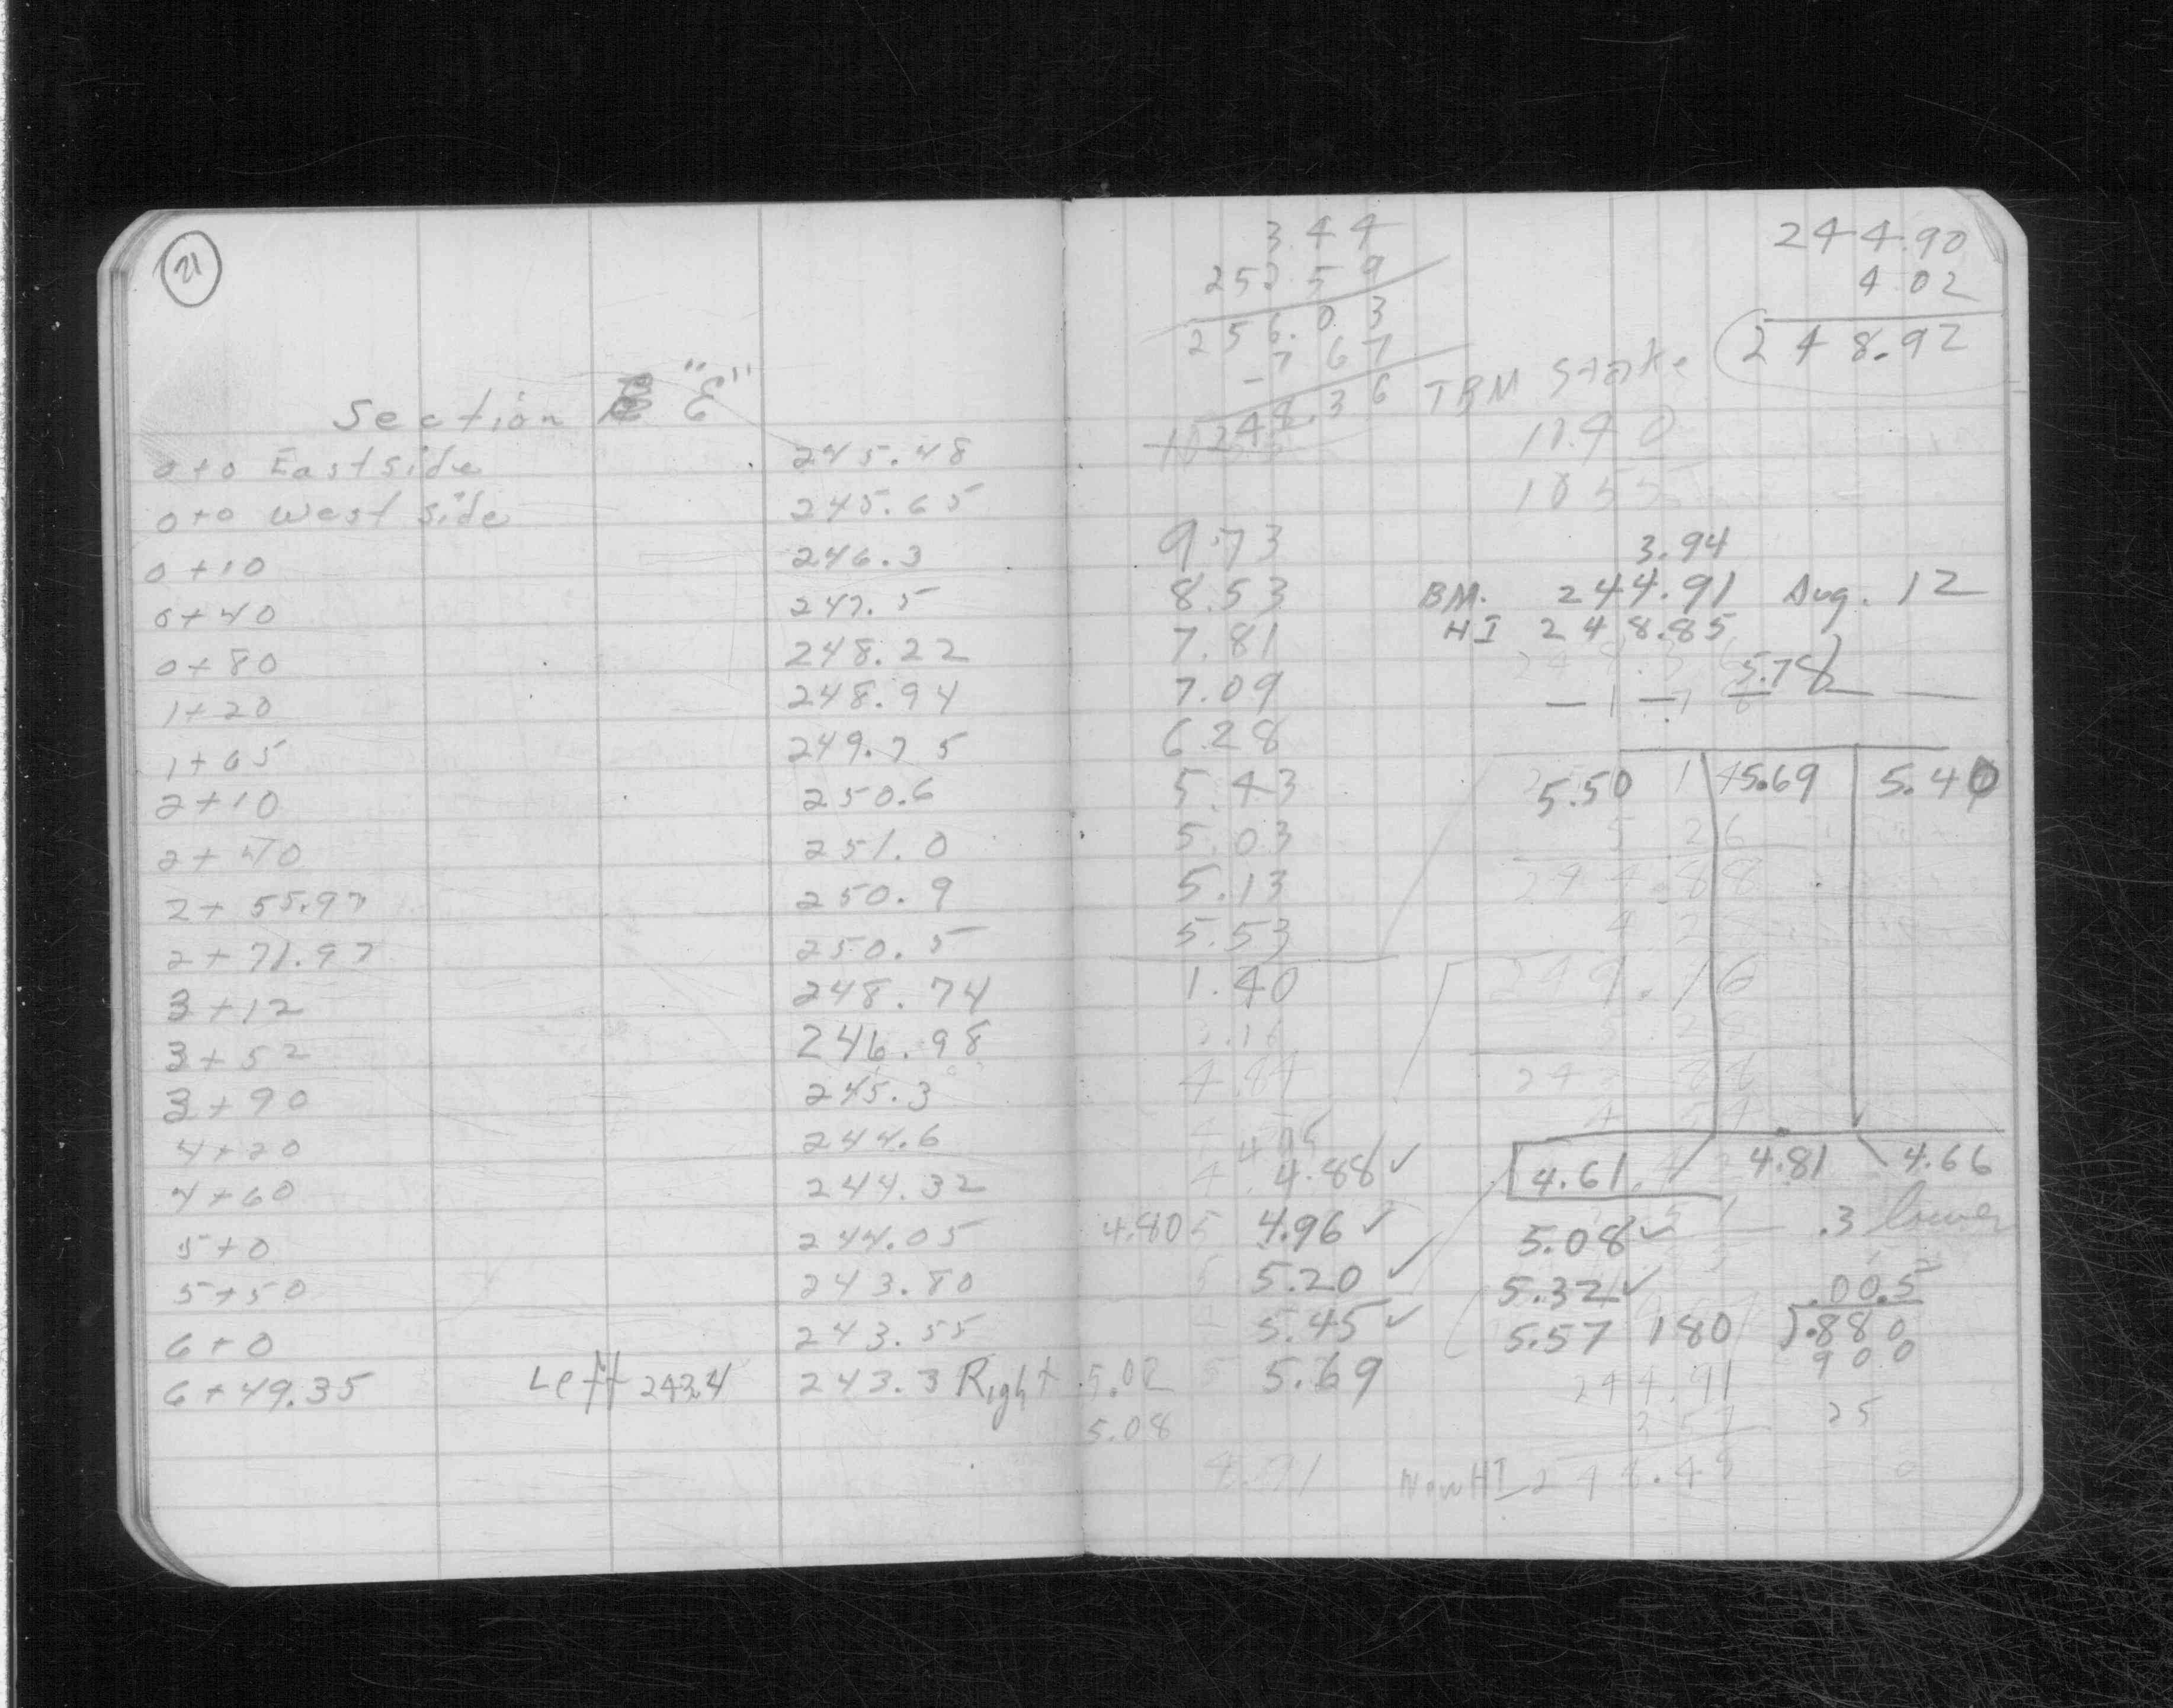 21
Section "E"
0+0 East side 245.48
0+0 West side 245.65
0+10 246.3
0+40 247.5
0+80 248.22
1+20 248.94
1+65 249.75
2+10 250.6
2+40 251.0
2+55.97 250.9
2+71.97 250.5
3+12 248.74
3+52 246.98
3+90 245.3
4+20 244.6
4+60 244.32
5+0 244.05
5+50 243.80
6+0 243.55
6+49.35 Left 243.4 243.3 Right
3.44
252.59
256.03
-7.67
248.36 TBM Stake
244.90
4.02
248.92
11.40
9.73
8.53
7.81
7.09
6.28
5.43
5.03
5.13
5.53
1.40
3.16
4.84
4.88 ✓
4.805 4.96 ✓
5.20 ✓
5.45 ✓
5.02 5.69
5.08
3.94
BM. 244.91 Aug. 12
HI 248.85
5.78
5.50 5.69 5.40
4.61 4.81 4.66
5.08 ✓ .3 lower
5.32 ✓ .005
5.57 180 ).880
900
244.91
3.57
25
New HI 248.48